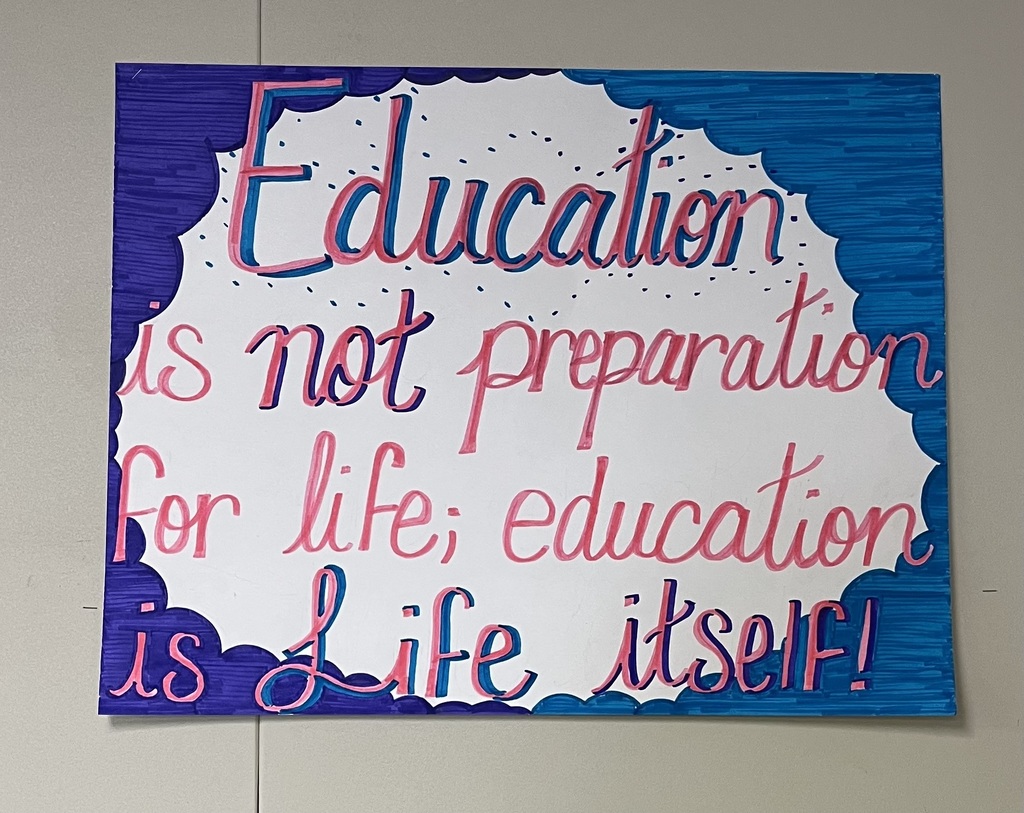 Education
is not preparation
for life; education
is Life itself!